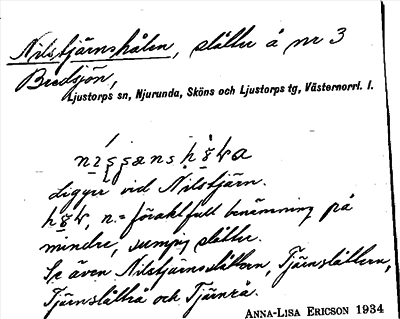 Nilstjärnshålen, slåtter å nr 3
Bredsjön,
Ljustorps sn, Njurunda, Sköns och Ljustorps tg, Västernorrl. l.
Ligger vid Nilstjärn.
n. = föraktfull benämning på
mindre, sumpig slåtter.
Se även Nilstjärnsslåttern, Tjärnslåttern,
Tjärnslåtträ och Tjärnrå.
ANNA-LISA ERICSON 1934